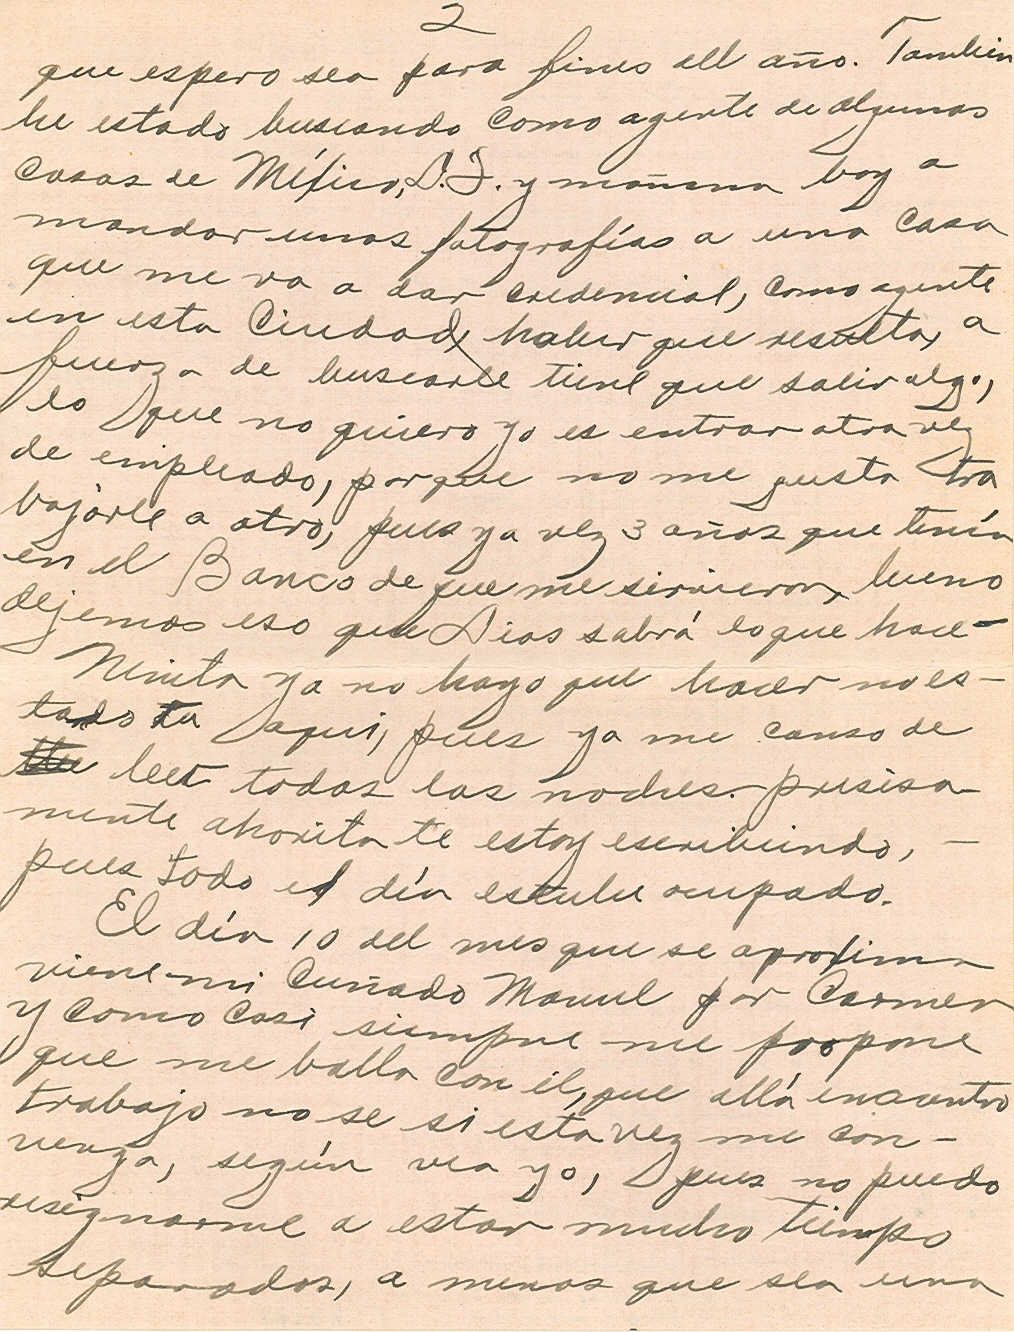 2
que espero sea para fines del año. Tambien
he estado buscando como agente de algunas
casas de México, D.F. y mañana voy a
mandar unas fotografías a una casa
que me va a dar credencial, como agente
en esta Ciudad, haber que resulta, a
fuerza de buscarle tiene que salir algo,
lo que no quiero yo es entrar otra vez
de empleado, porque no me gusta tra
bajarle a otro, pues ya vez 3 años que tenía
en el Banco de que me sirvieron, bueno
dejemos eso que Dios sabrá lo que hace-
Ninita ya no hayo que hacer no es-
tado tu aqui, pues ya me canso de
leer todas las noches. presisa-
mente ahorita te estoy escribiendo, -
pues todo el día estube ocupado.
El día 10 del mes que se aproxima
viene mi Cuñado Manuel por Carmen
y como casi siempre me propone
que me balla con él, que allá encuentro
trabajo no se si esta vez me con-
venga, según vea yo, pues no puedo
resignarme a estar mucho tiempo
separados, a menos que sea una